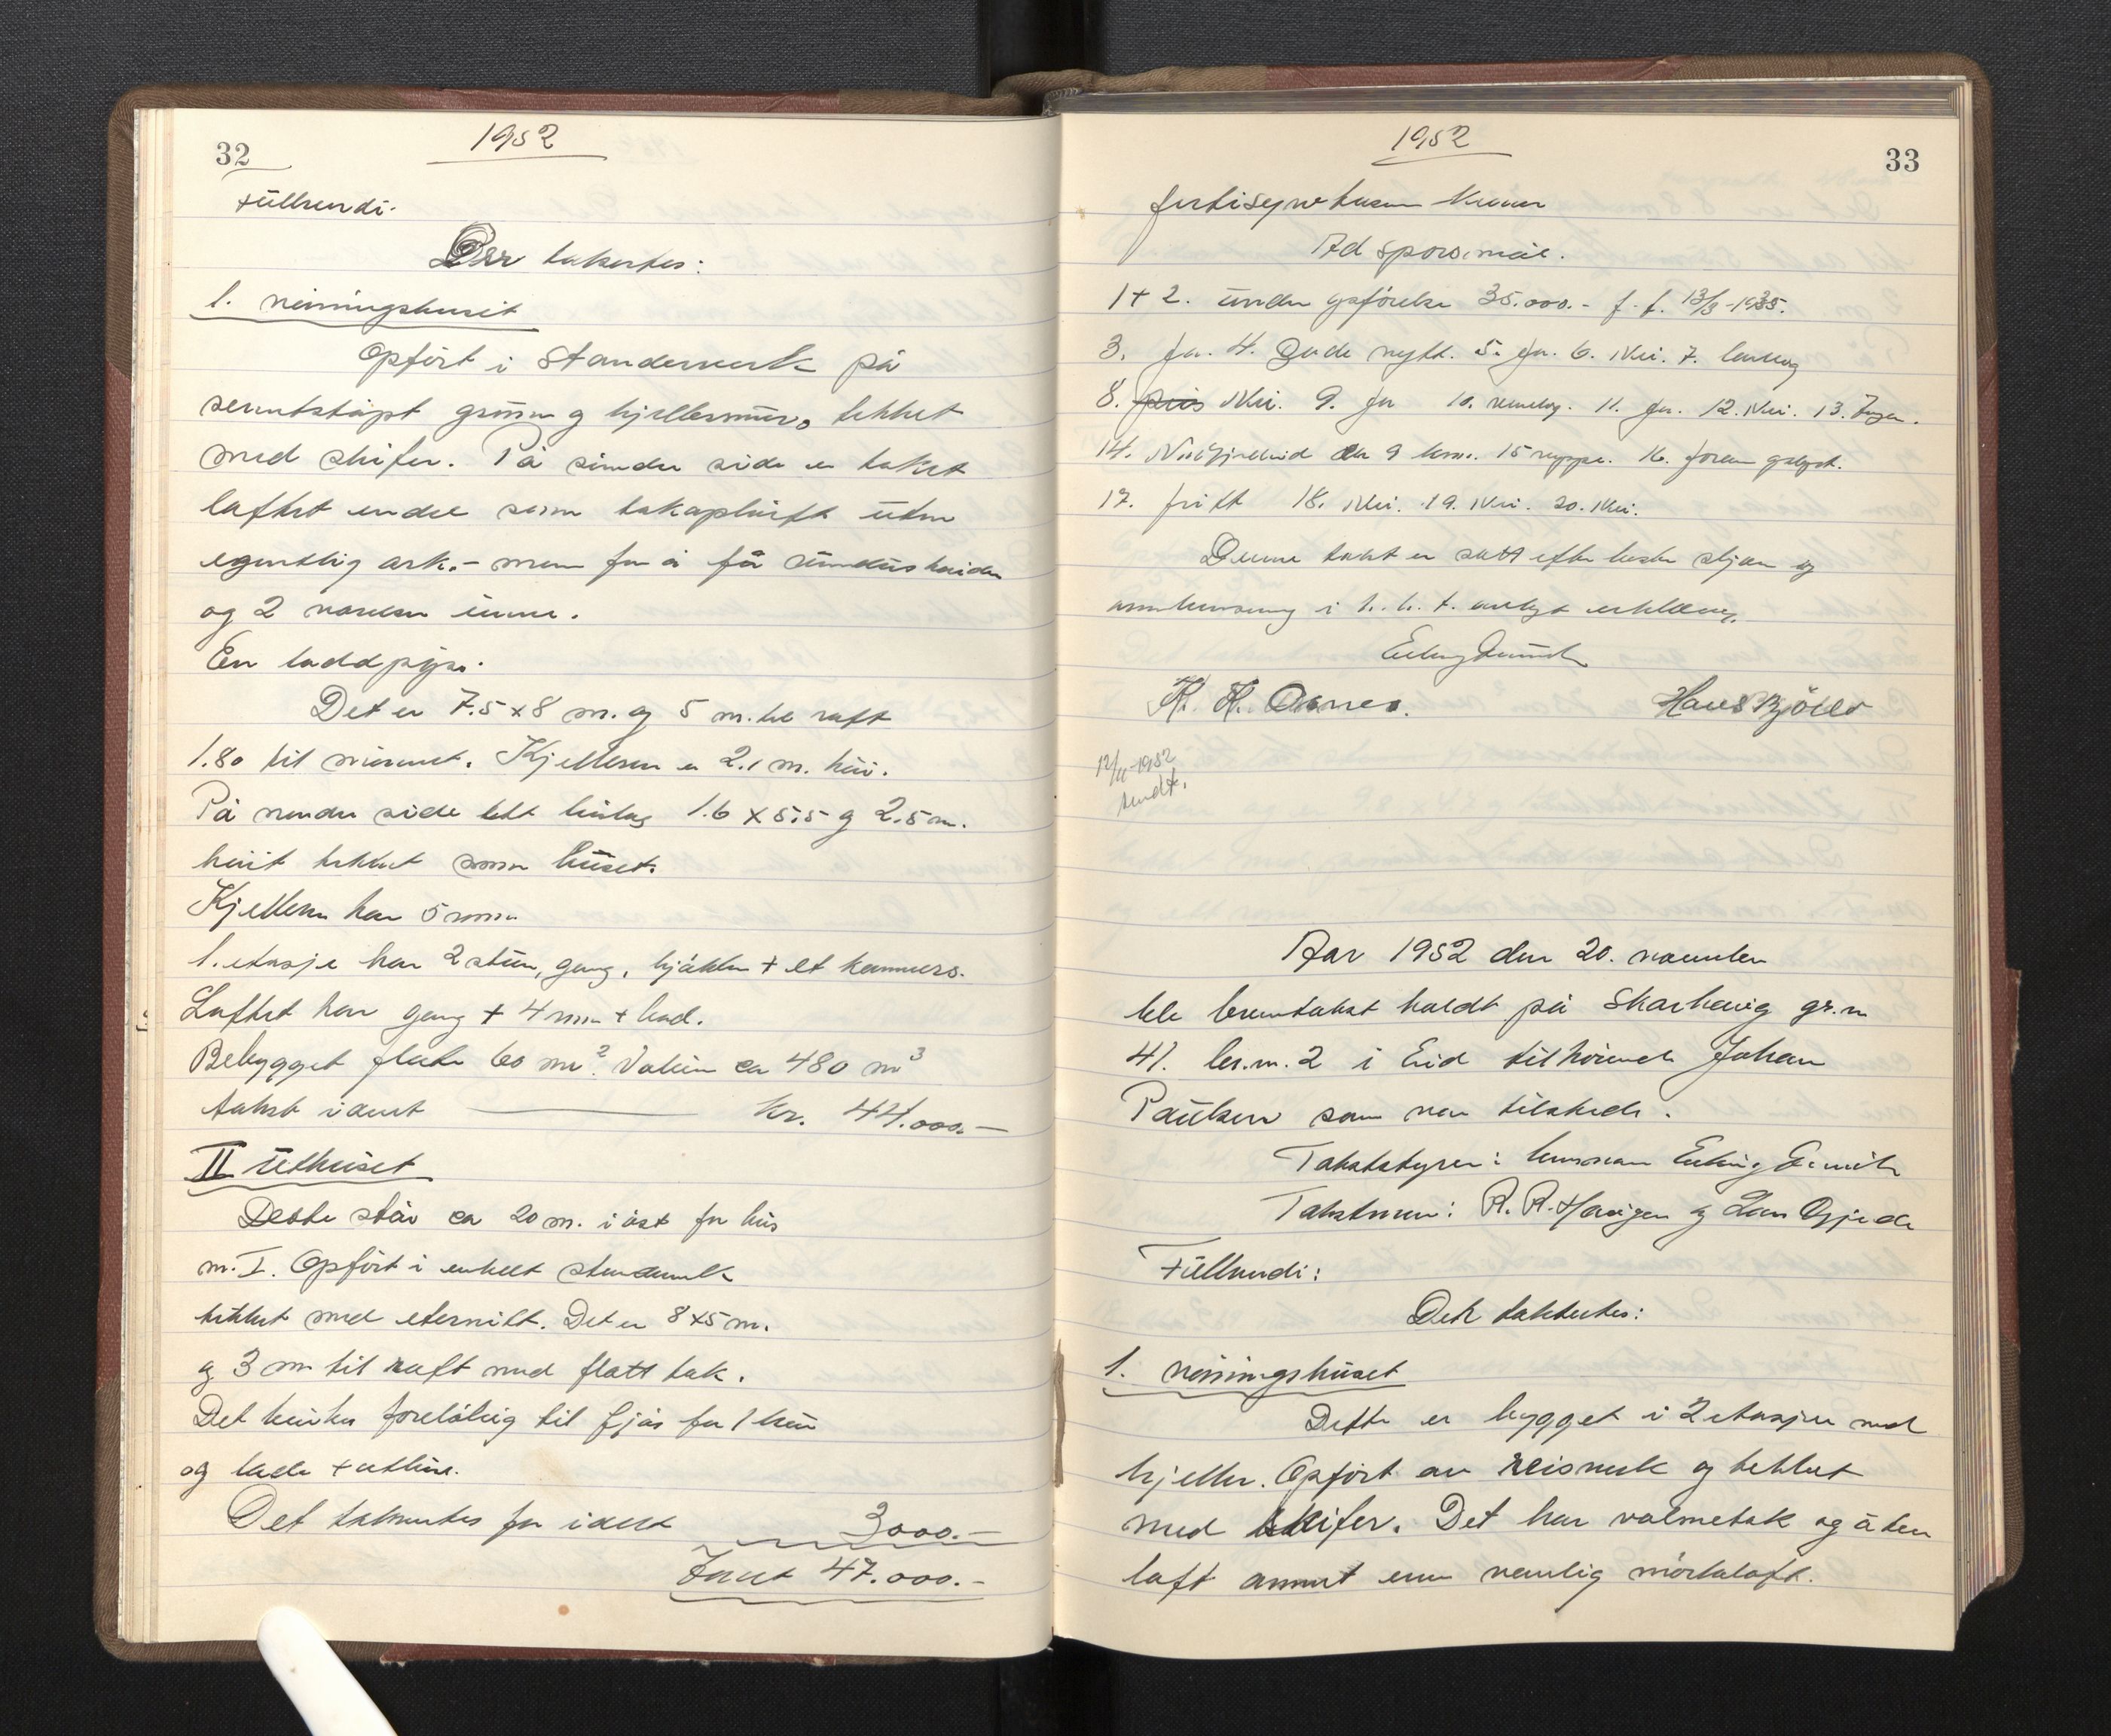 32
1952
fullvendi.
Der takertes:
1. våningshuset
Opført i standerverk på
sementstøpt grunn og kjellermur, tekket
med skifer. På søndre side er taket
løftet endel som takopløift uten
egentlig ark. - men for å få vindushøiden
og 2 værelser inne.
En loddpipe.
Det er 7.5 x 8 m. og 5 m. til raft
1.80 til mønnet. Kjelleren er 2.1 m. høi.
På nordre side lett tilbyg 1.6 x 5.5 og 2.5 m.
høit tekket som huset.
Kjelleren har 5 rom
1. etasje har 2 stuer, gang, kjøkken + et kammers.
Loftet har gang + 4 rom + bad.
Bebygget flate 60 m². Volum ca 480 m³
takst idemt kr. 44.000.-
II Uthuset
Dette står ca 20 m. i øst for hus
nr. I. Opført i enkelt standerverk
tekket med eternitt. Det er 8 x 5 m.
og 3 m til raft med flatt tak.
Det brukes foreløbig til fjøs for 1 ku
og lade + uthus.
Det takertes for idemt 3000.-
47.000.-
1952
33
førtisyvtusen kroner
Ad spørsmål.
1+2. under opførelse 35.000.- f. f. 13/3-1935.
3. Ja. 4. Gode nytt. 5. Ja. 6. Nei. 7. 
8. Nei. 9. Ja 10. 11. Ja. 12. Nei. 13. Ingen.
14. ca 9 km. 15 16.
17. fritt 18. Nei. 19. Nei. 20. Nei.
Denne takst er satt efter beste skjøn og
i h. h. t. avlagt erklæring.
H. H. Osnes. Hans Bjølve
12/11-1952
sendt.
Aar 1952 den 20. november
ble branntakst holdt på Skarhaug gr. nr
41. br. nr. 2 i Eid tilhørende Johan
Paulsen som var tilstede.
Takststyrer: lensmann
Takstmenn: R. R. Haugen og Lars
Fullvendi:
Det taktertes:
1. våningshuset
Dette er bygget i 2 etasjer med
kjeller. Opført av reisverk og tekket
med skifer. Det har valmetak og uten
loft annet enn vanlig mørkeloft.